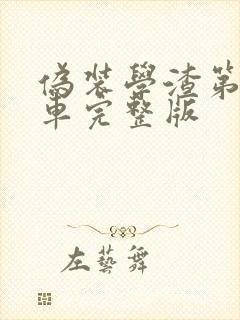 偽裝學渣第
車完整版
左藝舞